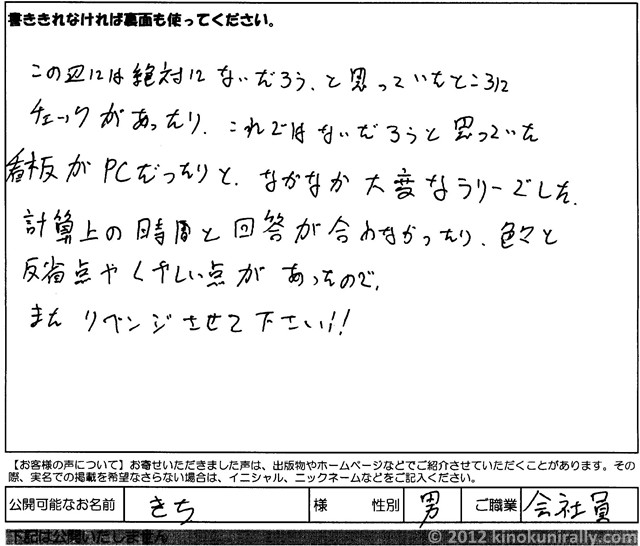 書ききれなければ裏面も使ってください。
この辺には絶対にないだろう、と思っていたところに
チェックがあったり、これではないだろうと思っていた
看板がPCだったりと、なかなか大変なラリーでした。
計算上の時間と回答が合わなかったり、色々と
反省点やくやしい点があったので、
また リベンジさせて下さい!!
【お客様の声について】お寄せいただきました声は、出版物やホームページなどでご紹介させていただくことがあります。その
際、実名での掲載を希望なさらない場合は、イニシャル、ニックネームなどをご記入ください。
公開可能なお名前 きち 様 性別 男 ご職業 会社員
下記は公開いたしません
© 2012 kinokunirally.com